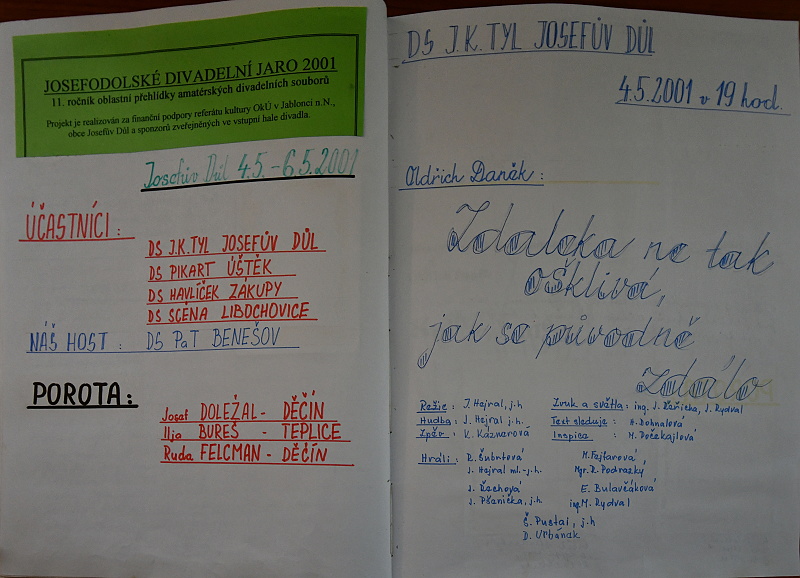 JOSEFODOLSKÉ DIVADELNÍ JARO 2001
11. ročník oblastní přehlídky amatérských divadelních souborů
Projekt je realizován za finanční podpory referátu kultury OkÚ v Jablonci n.N.,
obce Josefův Důl a sponzorů zveřejněných ve vstupní hale divadla.
Josefův Důl 4.5.-6.5.2001
ÚČASTNÍCI:
DS J.K.TYL JOSEFŮV DŮL
DS PIKART ÚŠTĚK
DS HAVLÍČEK ZÁKUPY
DS SCÉNA LIBOCHOVICE
NÁŠ HOST: DS PaT BENEŠOV
POROTA:
Josef DOLEŽAL - DĚČÍN
Ilja BUREŠ - TEPLICE
Ruda FELCMAN - DĚČÍN
DS J.K.TYL JOSEFŮV DŮL
4.5.2001 v 19 hod.
Oldřich Daněk:
Zdaleka ne tak
ošklivá,
jak se původně
zdálo
Režie: J. Hejral, j.h
Hudba: J. Hejral j.h.
Zpěv: K. Kaznerová
Zvuk a světla: ing. J. Řeřicha, J. Rydval
Text sleduje: H. Dohnalová
Inspice: M. Dočekajlová
Hráli: R. Šubrtová
J. Hejral ml.-j.h.
J. Čechová
J. Pšanička, j.h
M. Fejfarová
Mgr. R. Podrazký
E. Bulavčáková
ing. M. Rydval
Š. Pustai, j.h
D. Urbánek